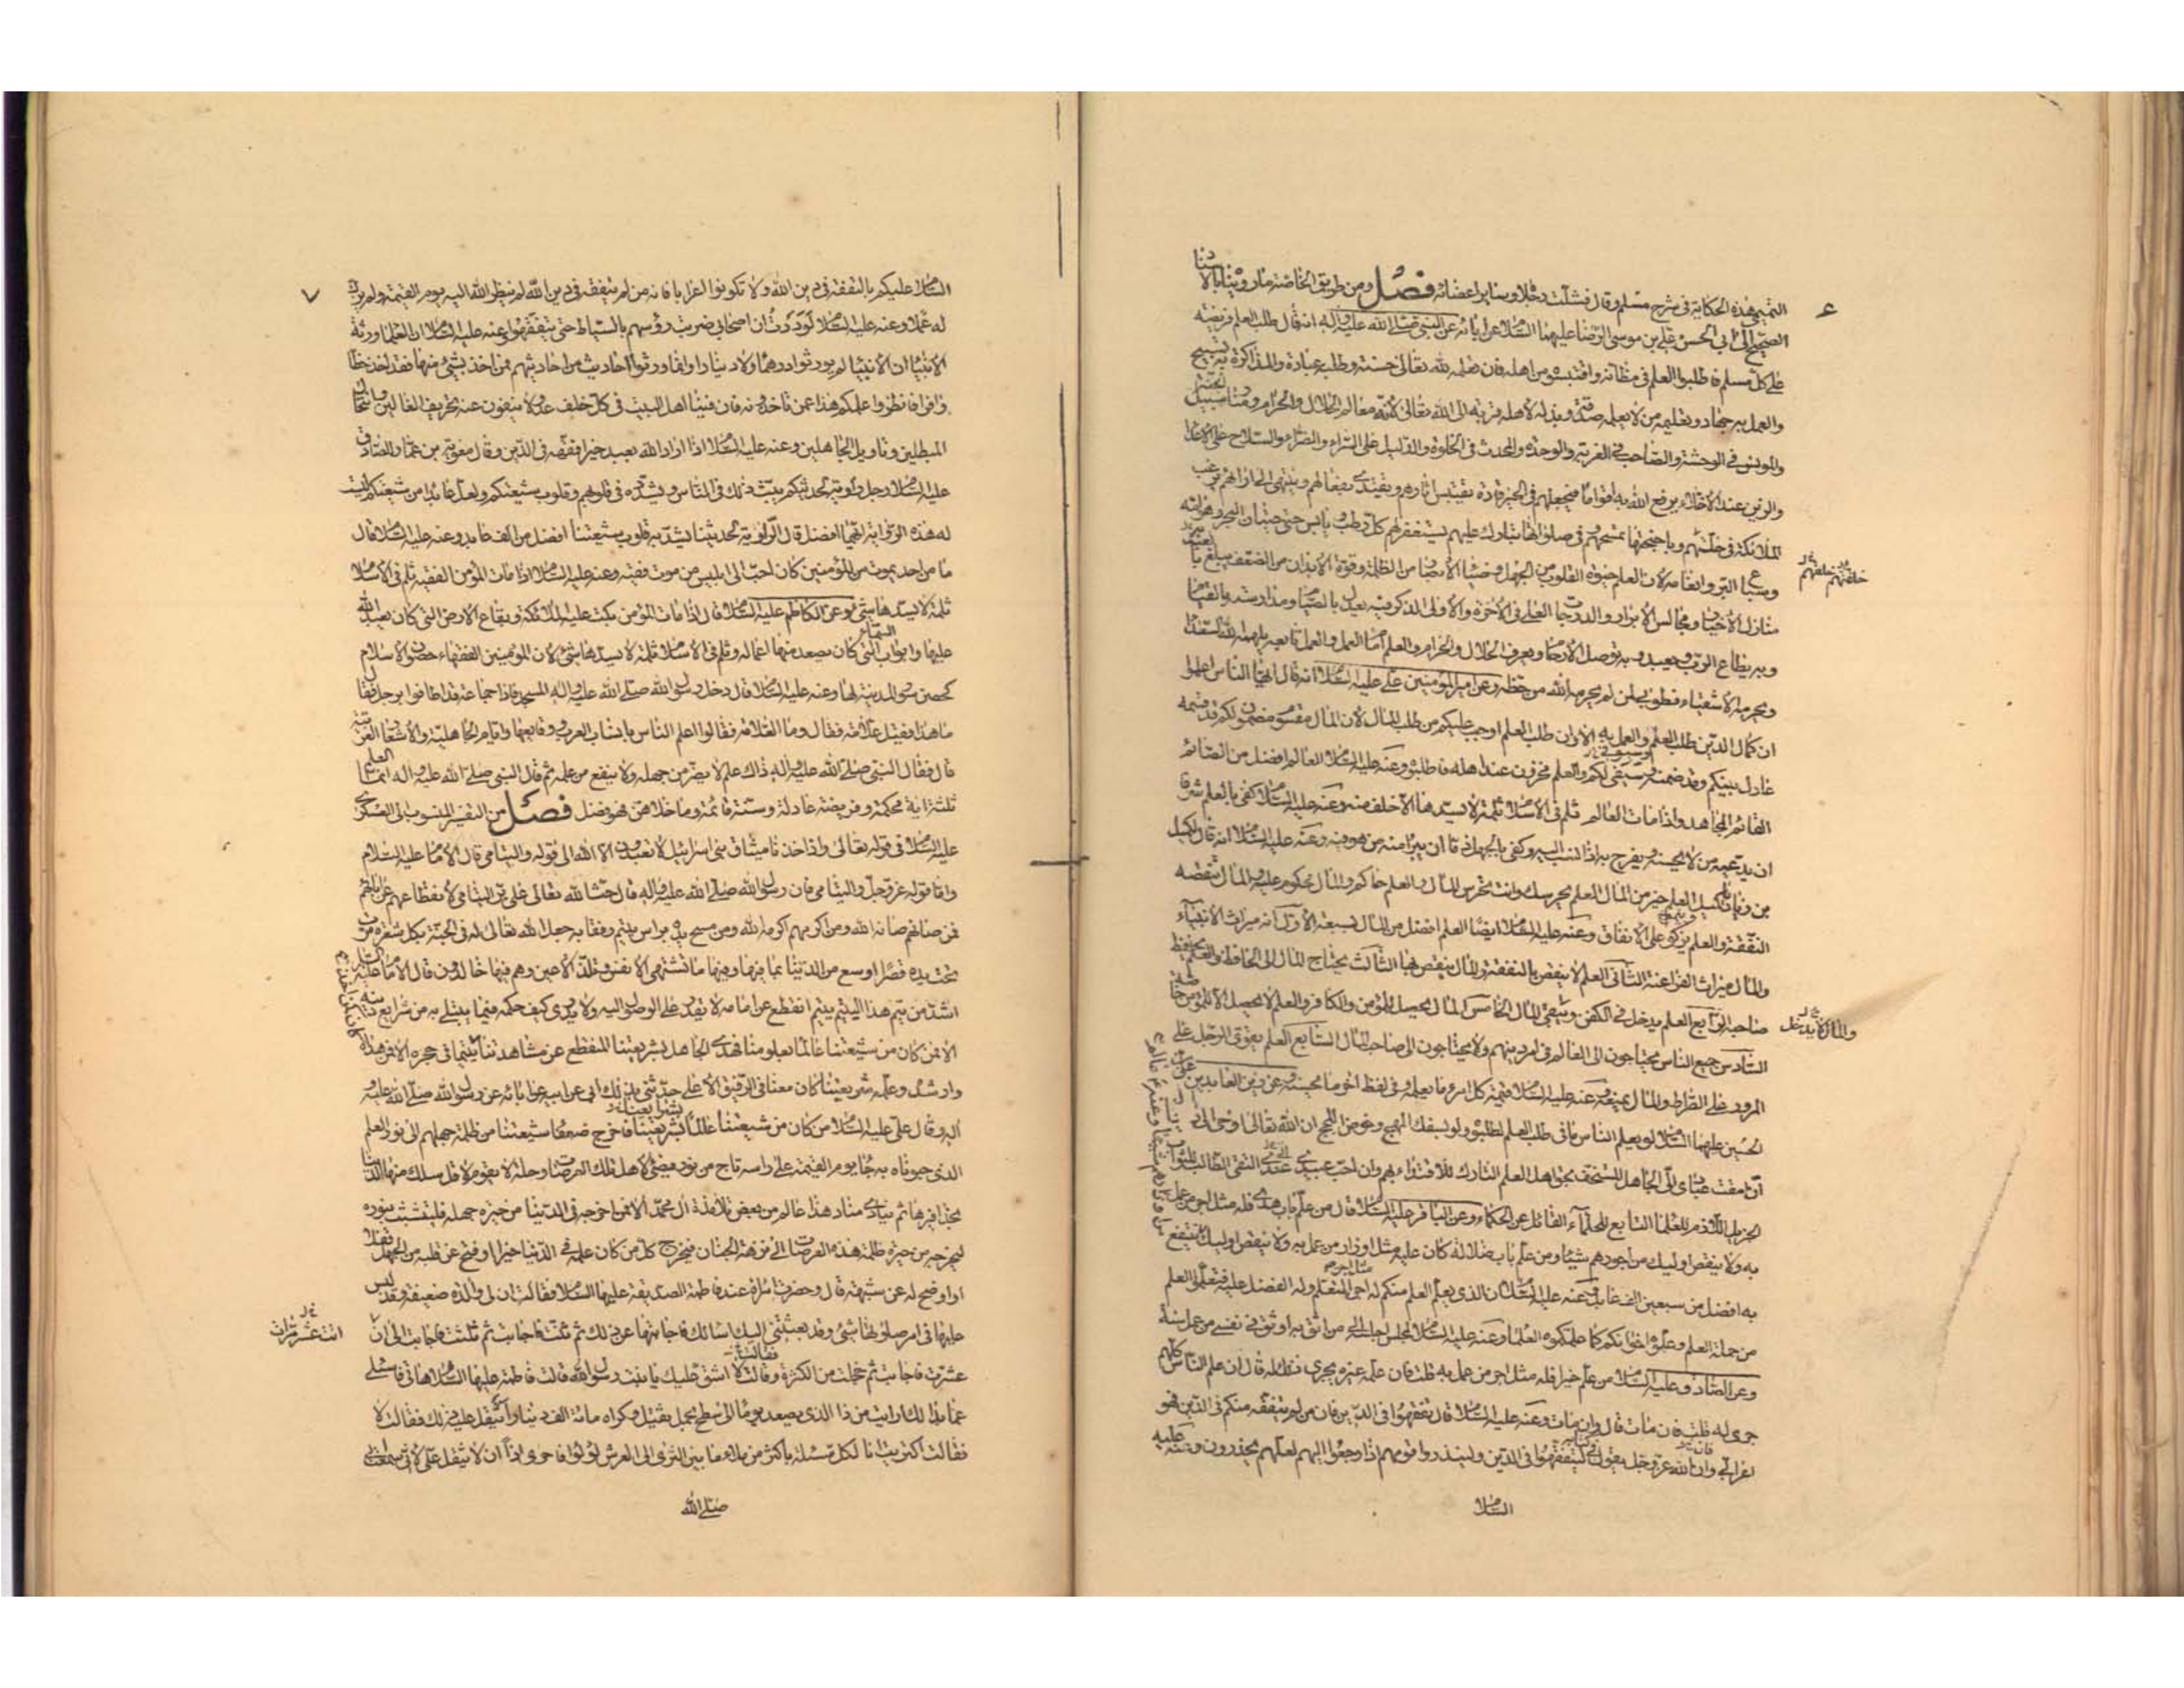 ٦
التميمي هذه الحكاية في شرح مسلم وقال فشلت رجلاه وسائر اعضائه فصل ومن طريق الخاصة ما رويناه بالاسناد
الصحيح الى ابي الحسن علي بن موسى الرضا عليهما السلام عن ابائه عن النبي صلى الله عليه واله انه قال طلب العلم فريضة
على كل مسلم فاطلبوا العلم في مظانه واقتبسوه من اهله فان تعلمه لله تعالى حسنة وطلبه عبادة والمذاكرة به تسبيح
والعمل به جهاد وتعليمه من لا يعلمه صدقة وبذله لاهله قربة الى الله تعالى لانه معالم الحلال والحرام ومنار سبيل الجنة
والمونس في الوحشة والصاحب في الغربة والوحدة والمحدث في الخلوة والدليل على السراء والضراء والسلاح على الاعداء
والزين عند الاخلاء يرفع الله به اقواما فيجعلهم في الخير قادة تقتبس اثارهم ويقتدى بفعالهم وينتهى الى ارائهم ترغب
الملائكة في خلتهم وباجنحتها تمسحهم وفي صلواتها تبارك عليهم يستغفر لهم كل رطب ويابس حتى حيتان البحر وهوامه
خلقهم خلفهم
وسباع البر وانعامه لان العلم حيوة القلوب من الجهل وضياء الابصار من الظلمة وقوة الابدان من الضعف يبلغ بالعبد
منازل الاخيار ومجالس الابرار والدرجات العلى في الاخرة والاولى الذكر فيه يعدل بالصيام ومدارسته بالقيام
وبه يطاع الرب ويعبد وبه توصل الارحام ويعرف الحلال والحرام والعلم امام العمل والعمل تابعه يلهمه الله السعداء
ويحرمه الاشقياء فطوبى لمن لم يحرمه الله من حظه وعن امير المؤمنين علي عليه السلام انه قال ايها الناس اعلموا
ان كمال الدين طلب العلم والعمل به الا وان طلب العلم اوجب عليكم من طلب المال لان المال مقسوم مضمون لكم قد قسمه
عادل بينكم وقد ضمنه وسيفي لكم والعلم مخزون عند اهله فاطلبوه وعنه عليه السلام العالم افضل من الصائم
القائم المجاهد واذا مات العالم ثلم في الاسلام ثلمة لا يسدها الا خلف منه وعنه عليه السلام كفى بالعلم شرفا
ان يدعيه من لا يحسنه ويفرح به اذا نسب اليه وكفى بالجهل ذما ان يبرأ منه من هو فيه وعنه عليه السلام انه قال لكميل
بن زياد يا كميل العلم خير من المال العلم يحرسك وانت تحرس المال والعلم حاكم والمال محكوم عليه والمال تنقصه
النفقة والعلم يزكو على الانفاق وعنه عليه السلام ايضا العلم افضل من المال لسبعة الاول انه ميراث الانبياء
والمال ميراث الفراعنة الثاني العلم لا ينقص بالنفقة والمال ينقص بها الثالث يحتاج المال الى الحافظ والعلم يحفظ
صاحبه الرابع العلم يدخل في الكفن ويبقى المال الخامس المال يحصل للمؤمن والكافر والعلم لا يحصل الا للمؤمن خاصة
والمال لا يدخل
السادس جميع الناس يحتاجون الى العالم في امر دينهم ولا يحتاجون الى صاحب المال السابع العلم يقوى الرجل على
المرور على الصراط والمال يمنعه وعنه عليه السلام قيمة كل امرء ما يعلمه وفي لفظ اخر ما يحسنه وعن زين العابدين علي بن
الحسين عليهما السلام لو يعلم الناس ما في طلب العلم لطلبوه ولو بسفك المهج وخوض اللجج ان الله تعالى اوحى الى دانيال
ان امقت عبادي الي الجاهل المستخف بحق اهل العلم التارك للاقتداء بهم وان احب عبيدي عندي التقي الطالب للثواب
الجزيل اللازم للعلماء التابع للحلماء القائل عن الحكماء وعن الباقر عليه السلام قال من علم باب هدى فله مثل اجر من عمل
به ولا ينقص اوليك من اجورهم شيئا ومن علم باب ضلالة كان عليه مثل اوزار من عمل به ولا ينقص اوليك
به افضل من سبعين الف عابد وعنه عليه السلام ان الذي يعلم العلم منكم له اجر المتعلم وله الفضل عليه فتعلموا العلم
من حملة العلم وعلموه اخوانكم كما علمكموه العلماء وعنه عليه السلام لمجلس اجلسه الى من اثق به اوثق في نفسي من عمل سنة
وعن الصادق عليه السلام من علم خيرا فله مثل اجر من عمل به قلت فان علمه غيره يجري ذلك له قال ان علم الناس كلهم
جرى له قلت فان مات قال وان مات وعنه عليه السلام قال تفقهوا في الدين فان من لم يتفقه منكم في الدين فهو
اعرابي وان الله عز وجل يقول ليتفقهوا في الدين ولينذروا قومهم اذا رجعوا اليهم لعلهم يحذرون وعنه عليه
السلام
٧
السلام عليكم بالتفقه في دين الله ولا تكونوا اعرابا فانه من لم يتفقه في دين الله لم ينظر الله اليه يوم القيمة ولم يزك
له عملا وعنه عليه السلام لوددت ان اصحابي ضربت رؤسهم بالسياط حتى يتفقهوا وعنه عليه السلام ان العلماء ورثة
الانبياء ان الانبياء لم يورثوا درهما ولا دينارا وانما ورثوا احاديث من احاديثهم فمن اخذ بشئ منها فقد اخذ حظا
وافرا فانظروا علمكم هذا عمن تاخذونه فان فينا اهل البيت في كل خلف عدولا ينفون عنه تحريف الغالين وانتحال
المبطلين وتاويل الجاهلين وعنه عليه السلام اذا اراد الله بعبد خيرا فقهه في الدين وقال معوية بن عمار للصادق
عليه السلام رجل راوية لحديثكم يبث ذلك في الناس ويشدده في قلوبهم وقلوب شيعتكم ولعل عابدا من شيعتكم ليست
له هذه الرواية ايهما افضل قال الراوية لحديثنا يشد به قلوب شيعتنا افضل من الف عابد وعنه عليه السلام قال
ما من احد يموت من المؤمنين كان احب الى ابليس من موت فقيه وعنه عليه السلام اذا مات المؤمن الفقيه ثلم في الاسلام
ثلمة لا يسدها شئ وعن الكاظم عليه السلام قال اذا مات المؤمن بكت عليه الملائكة وبقاع الارض التي كان يعبد الله
عليها وابواب السماء التي كان يصعد منها اعماله وثلم في الاسلام ثلمة لا يسدها شئ لان المؤمنين الفقهاء حصون الاسلام
كحصن سور المدينة لها وعنه عليه السلام قال دخل رسول الله صلى الله عليه واله المسجد فاذا جماعة قد اطافوا برجل فقال
ما هذا فقيل علامة فقال وما العلامة فقالوا اعلم الناس بانساب العرب ووقائعها وايام الجاهلية والاشعار العربية
قال فقال النبي صلى الله عليه واله ذاك علم لا يضر من جهله ولا ينفع من علمه ثم قال النبي صلى الله عليه واله انما العلم
ثلثة اية محكمة وفريضة عادلة وسنة قائمة وما خلاهن فهو فضل فصل من التفسير المنسوب الى العسكري
عليه السلام في قوله تعالى واذ اخذنا ميثاق بني اسرائيل لا تعبدون الا الله الى قوله واليتامى قال الامام عليه السلام
واما قوله عز وجل واليتامى فان رسول الله صلى الله عليه واله قال حث الله تعالى على بر اليتامى لانقطاعهم عن ابائهم
فمن صانهم صانه الله ومن اكرمهم اكرمه الله ومن مسح يده براس يتيم رفقا به جعل الله تعالى له في الجنة بكل شعرة مرت
تحت يده قصرا اوسع من الدنيا بما فيها وفيها ما تشتهي الانفس وتلذ الاعين وهم فيها خالدون قال الامام عليه السلام
اشد من يتم هذا اليتيم يتيم انقطع عن امامه لا يقدر على الوصول اليه ولا يدري كيف حكمه فيما يبتلى به من شرايع دينه
الا فمن كان من شيعتنا عالما بعلومنا فهدى الجاهل بشريعتنا المنقطع عن مشاهدتنا كان يتيما في حجره الا فمن هداه
وارشده وعلمه شريعتنا كان معنا في الرفيق الاعلى حدثني بذلك ابي عن ابيه عن ابائه عن رسول الله صلى الله عليه
اله وقال علي عليه السلام من كان من شيعتنا عالما بشريعتنا فاخرج ضعفاء شيعتنا من ظلمة جهلهم الى نور العلم
الذي حبوناه به جاء يوم القيمة على راسه تاج من نور يضئ لاهل تلك العرصات وحلة لا يقوم لاقل سلك منها الدنيا
بحذافيرها ثم ينادي مناد هذا عالم من بعض تلامذة ال محمد الا فمن اخرجه في الدنيا من حيرة جهله فليتشبث بنوره
ليخرجه من حيرة ظلمة هذه العرصات الى نزهة الجنان فيخرج كل من كان علمه في الدنيا خيرا او فتح عن قلبه من الجهل قفلا
او اوضح له عن شبهة قال وحضرت امراة عند فاطمة الصديقة عليها السلام فقالت ان لي والدة ضعيفة وقد لبس
عليها في امر صلوتها شئ وقد بعثتني اليك اسالك فاجابتها عن ذلك ثم ثنت فاجابت ثم ثلثت فاجابت الى ان
عشرت فاجابت ثم خجلت من الكثرة وقالت لا اشق عليك يا بنت رسول الله قالت فاطمة عليها السلام هاتي وسلي
عما بدا لك ارايت من ذا الذي يصعد يوما الى سطح بحمل ثقيل وكراه مائة الف دينار ايثقل عليه ذلك فقالت لا
فقالت اكتريت انا لكل مسئلة باكثر من ملاء ما بين الثرى الى العرش لؤلؤا فاحرى اذا ان لا يثقل علي لاني سمعت ابي
صلى الله